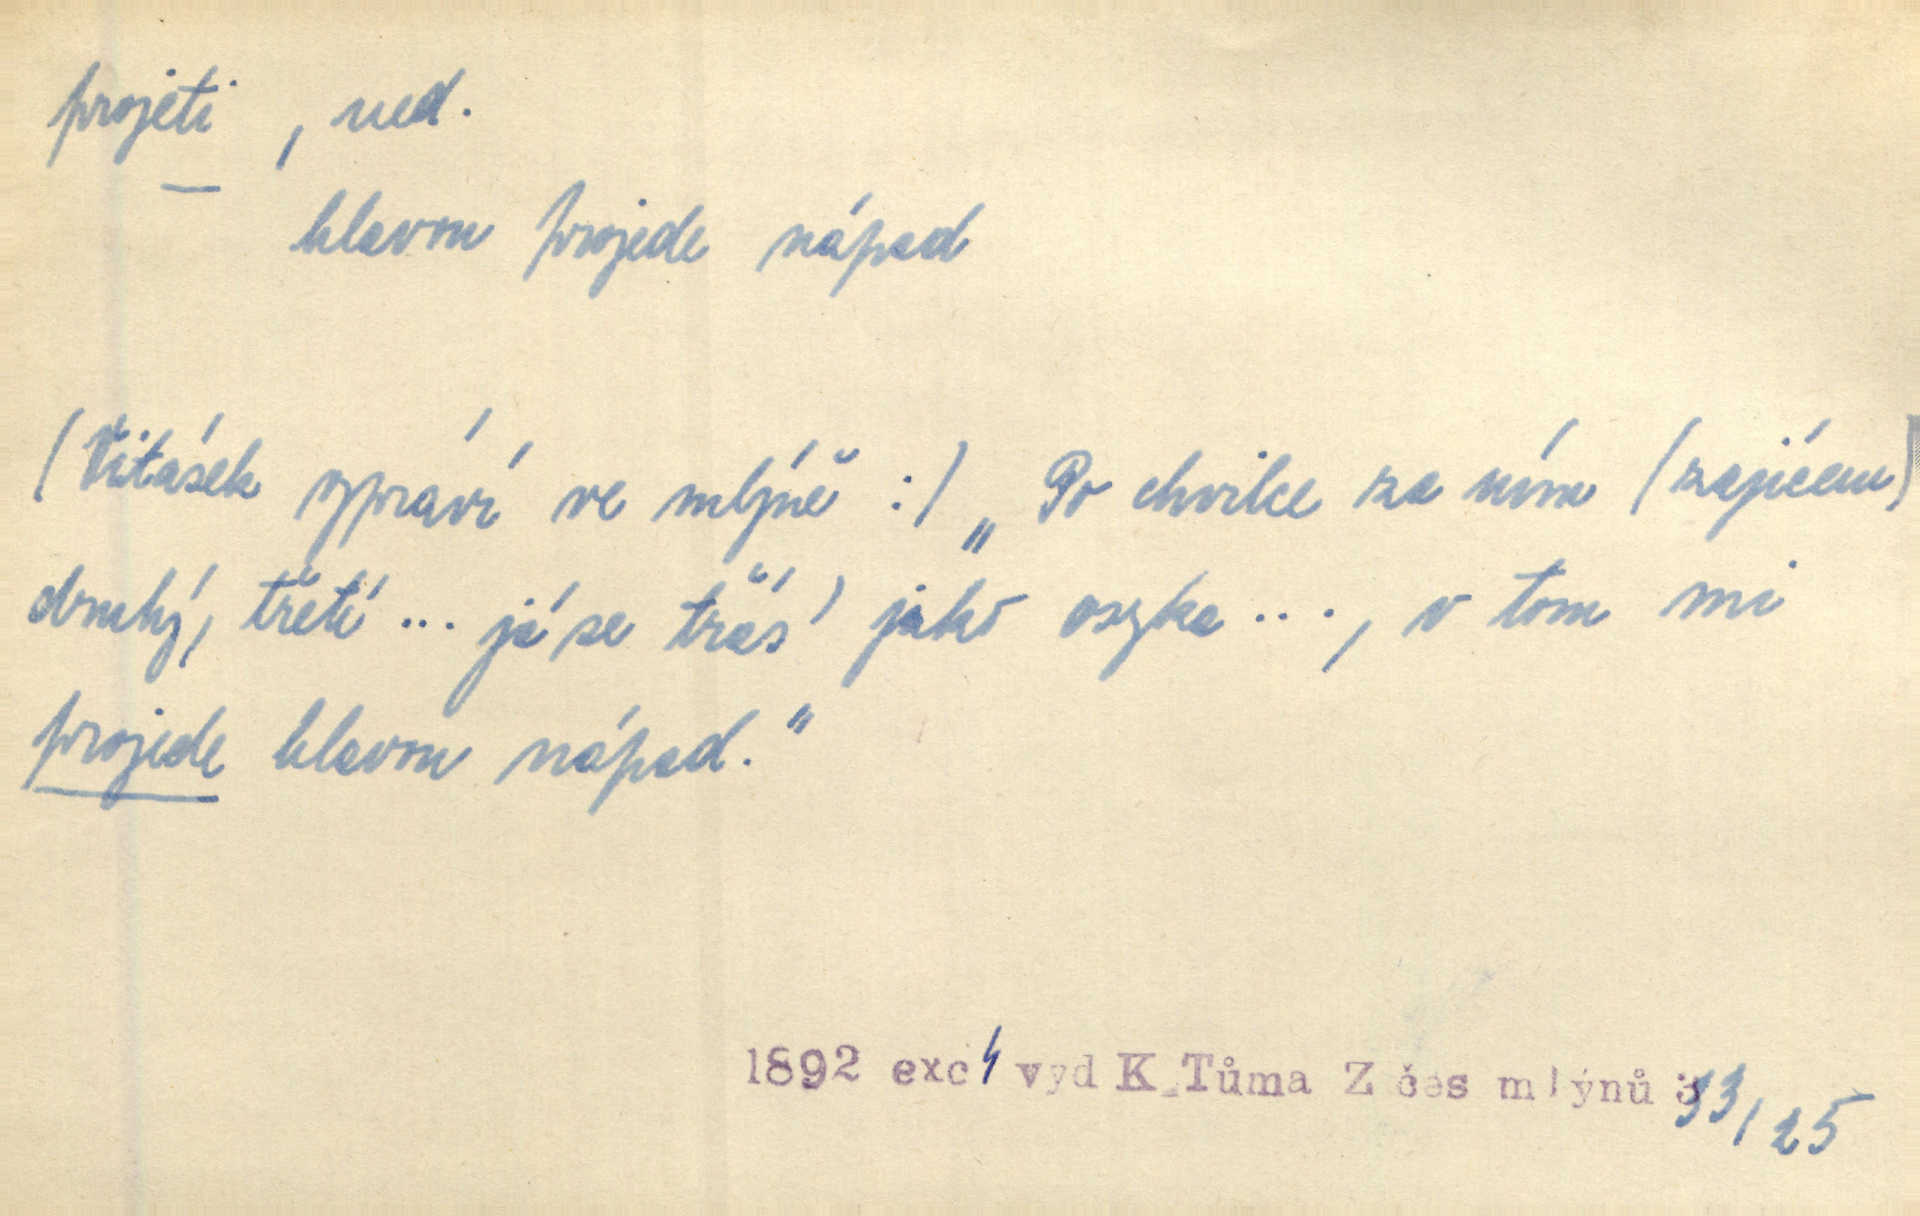 projeti, ned.
hlavou projede nápad
(Vitásek vypráví ve mlýně:) „Po chvilce za ním (zajícem)
druhý, třetí ... já se třás' jako osyka ..., v tom mi
projede hlavou nápad."
1892 exc 4 vyd K.Tůma Z čes mlýnů 33/25